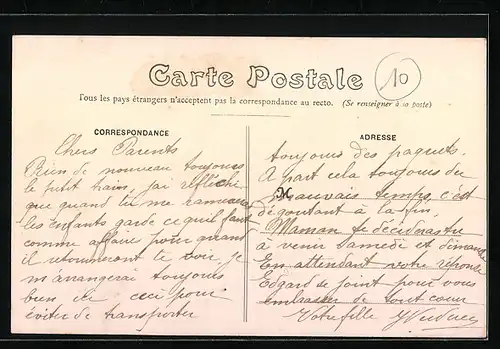 Carte Postale
10
Tous les pays étrangers n'acceptent pas la correspondance au recto. (Se renseigner à la poste)
CORRESPONDANCE
Chers Parents
Rien de nouveau toujours
le petit train, j'ai réfléchi
que quand tu me ramenera
les enfants garde ce qu'il faut
comme affaires pour quand
il retourneront le voir, je
m'arrangerai toujours
bien ici ceci pour
éviter de transporter
ADRESSE
toujours des paquets.
A part cela toujours du
Mauvais temps, c'est
dégoutant à la fin,
Maman te decideras tu
à venir Samedi et dimanche
En attendant votre réponse
Edgard se joint pour vous
embrasser de tout cœur
Votre fille